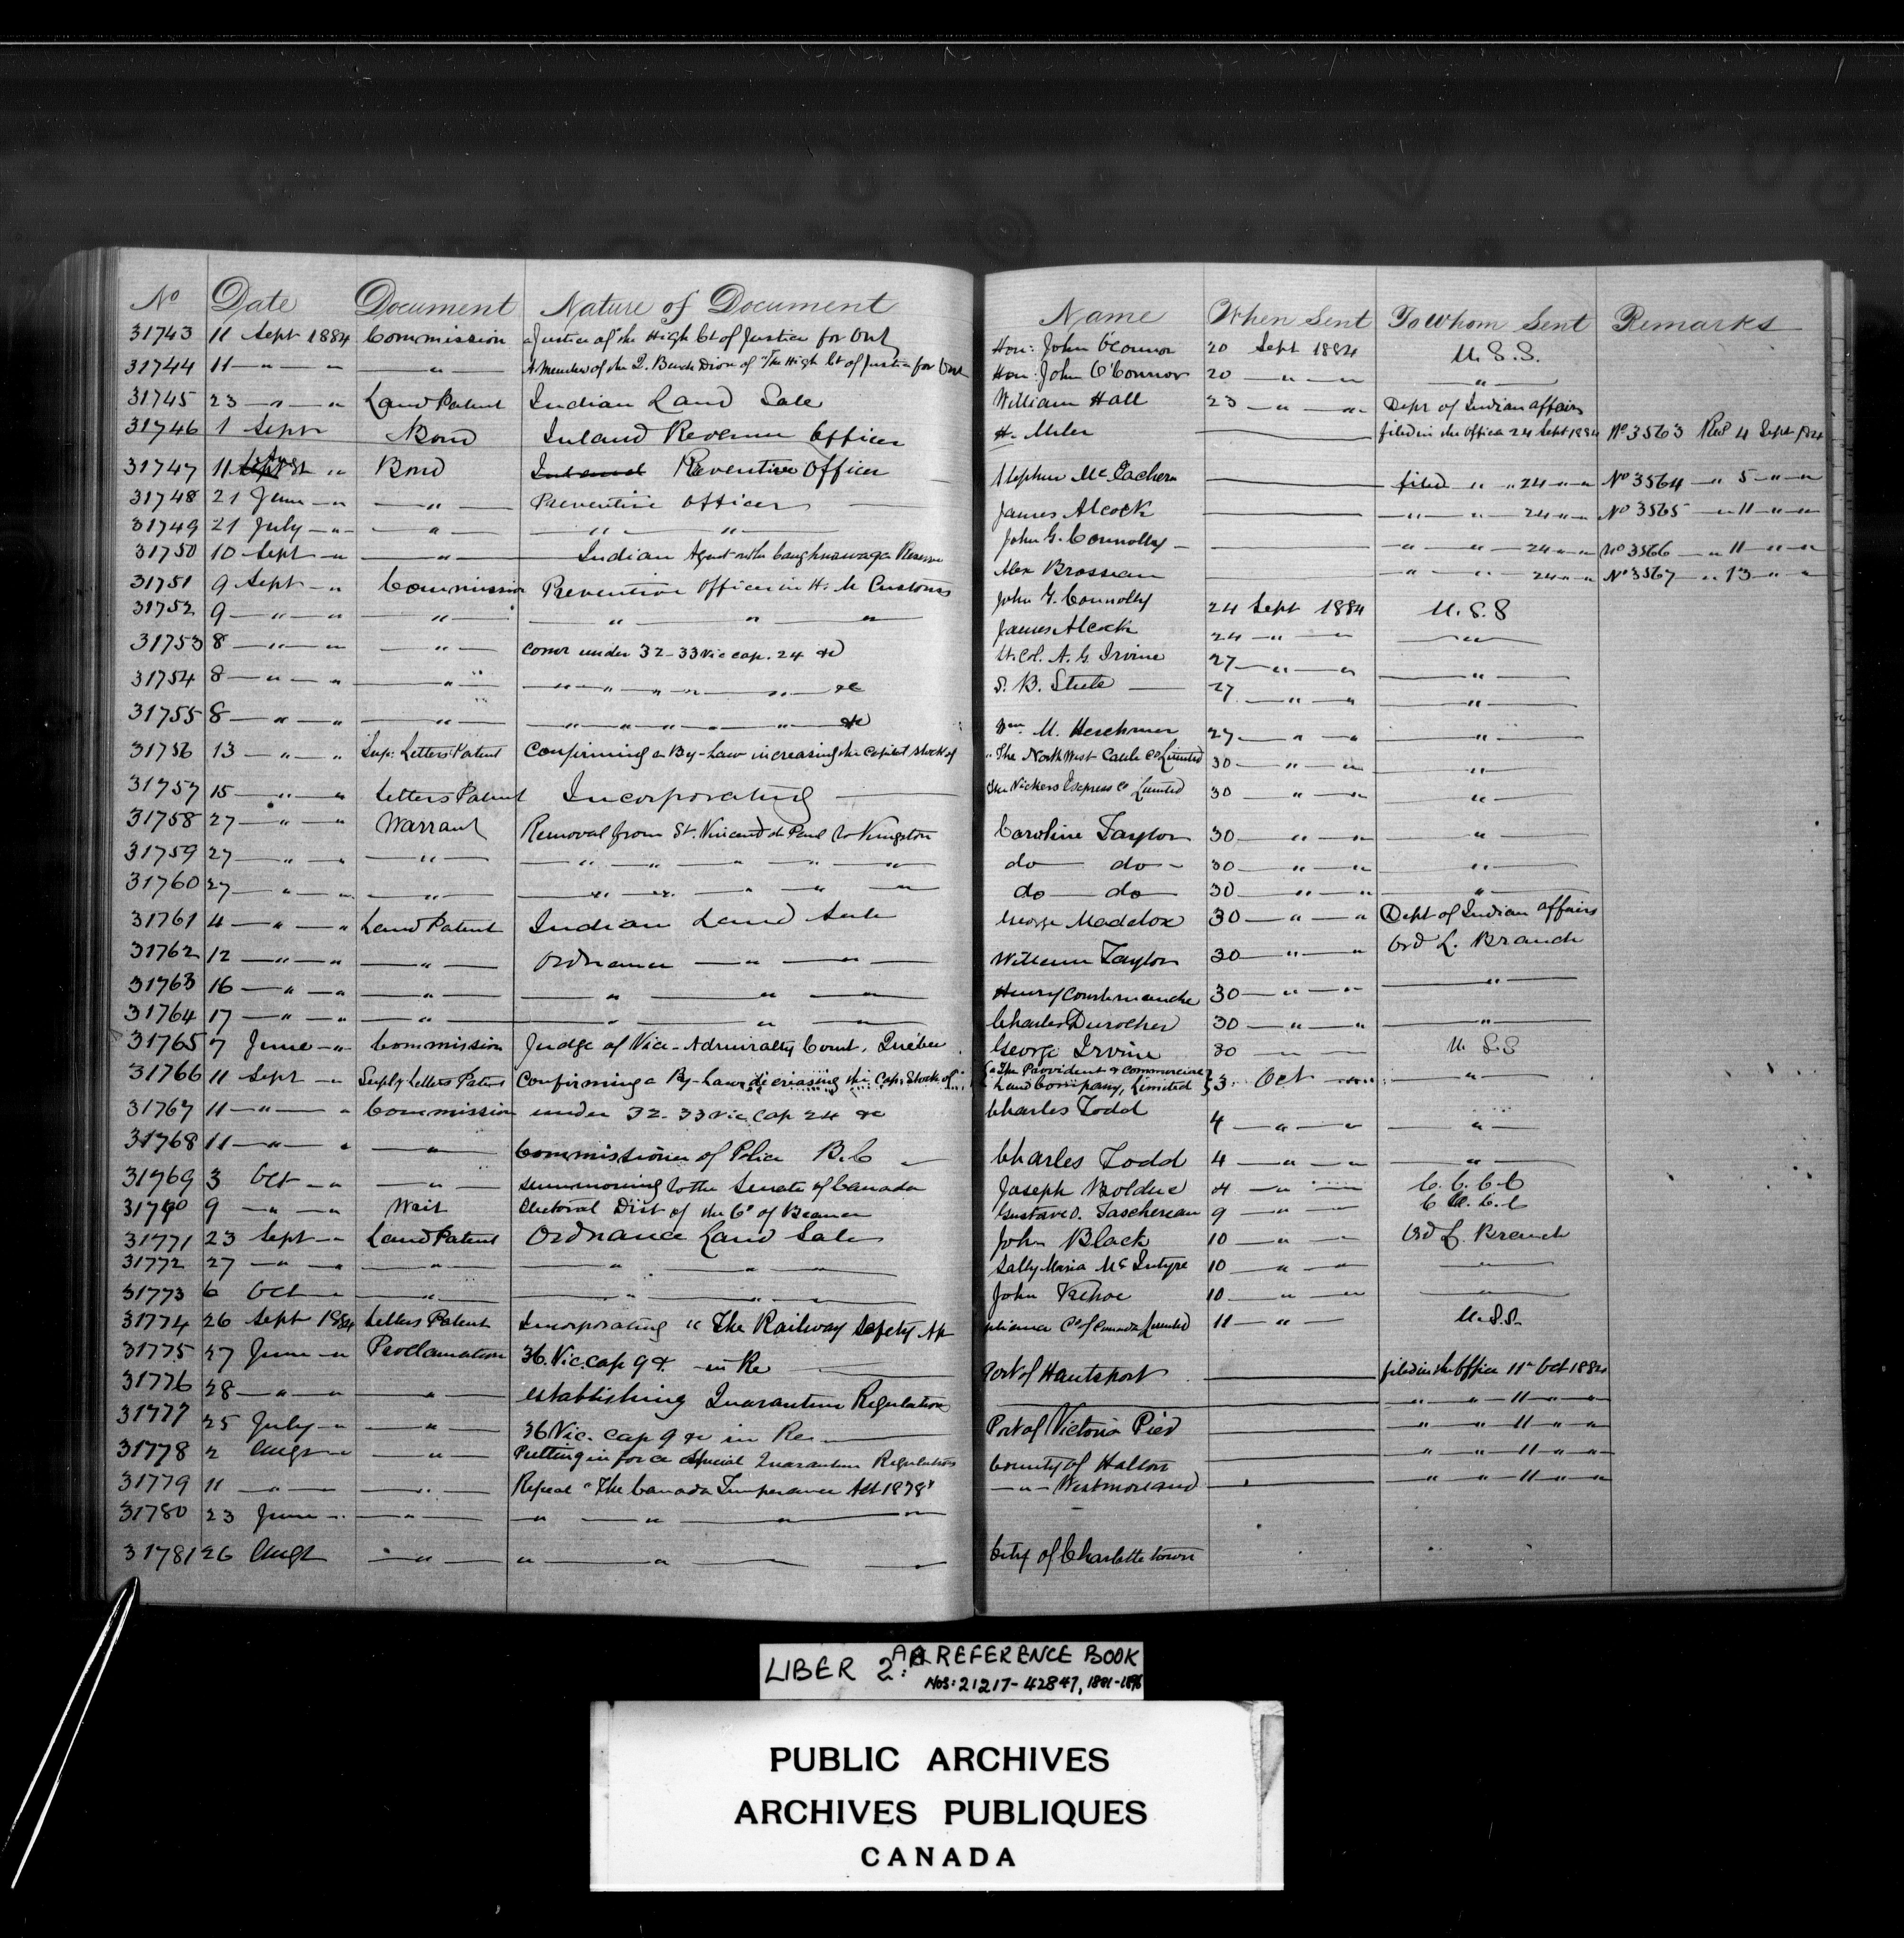 No Date Document Nature of Document Name When Sent To Whom Sent Remarks
31743 11 Sept 1884 Commission a Justice of the High Ct of Justice for Ont Hon: John O'Connor 20 Sept 1884 U.S.S.
31744 11 — " — " — " — A Member of the Q. Bench Divn of "The High Ct of Justice for Ont Hon: John O'Connor 20 — " — " — " —
31745 23 — " — " Land Patent Indian Land Sale William Hall 23 — " — " Dept of Indian affairs
31746 1 Sept Bond Inland Revenue Officer H. filed in the Office 24 Sept 1884 No 3563 Recd 4 Sept 1884
31747 11 " Bond Inland Preventive Officer Stephen McEachern — filed " " 24 " " No 3564 — " 5 — " — "
31748 21 June — " — " — Preventive Officer James Alcock — " — " — 24 " — " No 3565 — " 11 — " — "
31749 21 July — " — " — " — " — John G. Connolly — " — " — 24 " " No 3566 — " 11 — " — "
31750 10 Sept — " — " — Indian Agent Caughnawaga Reserve Alex Brosseau — " — " 24 " — " No 3567 — " 13 — " — "
31751 9 Sept — " Commission Preventive Officer in H. M Customs John G. Connolly 24 Sept 1884 U.S.S
31752 9 — " — " — " — — " — " — " — James Alcock 24 — " — " — " —
31753 8 — " — " — " — Comr under 32-33 Vic cap. 24 &c Lt. Col. A. G. Irvine 27 — " — " — " —
31754 8 — " — " — " — — " — " — " — " — " — &c S. B. Steele — 27 — " — " — " —
31755 8 — " — " — " — — " — " — " — " — " — &c Wm M. Herchmer 27 — " — " — " —
31756 13 — " — " Sup: Letters Patent Confirming a By-Law increasing the Capital Stock of "The North West Cattle Co Limited 30 — " — " — " —
31757 15 — " — " Letters Patent Incorporating — The Vickers Express Co Limited 30 — " — " — " —
31758 27 — " — " Warrant Removal from St. Vincent de Paul to Kingston Caroline Taylor 30 — " — " — " —
31759 27 — " — " — " — — " — " — " — " — " do — do — 30 — " — " — " —
31760 27 — " — " — " — — " — " — " — " — " do — do — 30 — " — " — " —
31761 4 — " — " Land Patent Indian Land Sale George Maddox 30 — " — " Dept of Indian affairs
31762 12 — " — " — " — Ordnance — " — " — William Taylor 30 — " — " Ord L. Branch
31763 16 — " — " — " — — " — " — " — Henry Courtemanche 30 — " — " — " —
31764 17 — " — " — " — — " — " — " — Charles Durocher 30 — " — " — " —
31765 7 June — " Commission Judge of Vice-Admiralty Court, Quebec George Irvine 30 — " — " U.S.S
31766 11 Sept — " Supl Letters Patent Confirming a By-Law decreasing the Cap. Stock of "The Provident & Commercial Land Company, Limited } 3 Oct — " — " —
31767 11 — " — " Commission under 32-33 Vic cap 24 &c Charles Todd 4 — " — " — " —
31768 11 — " — " — " — Commissioner of Police B.C — Charles Todd 4 — " — " — " —
31769 3 Oct — " — " — summoning to the Senate of Canada Joseph Bolduc 4 — " — C.C.C.C
31770 9 — " — " Writ Electoral Dist of the Co of Beauce Gustave O. Taschereau 9 — " — " C.C.C.C
31771 23 Sept — " Land Patent Ordnance Land Sale John Black 10 — " — " Ord L. Branch
31772 27 — " — " — " — — " — " — " — Sally Maria McIntyre 10 — " — " — " —
31773 6 Oct — " — — " — " — " — John Kehoe 10 — " — " — " —
31774 26 Sept 1884 Letters Patent Incorporating "The Railway Safety Appliance Co of Canada Limited 11 — " — U.S.S.
31775 27 June — " Proclamation 36. Vic. cap 9 &c — in Re — Port of Hantsport — filed in the Office 11th Oct 1884
31776 28 — " — " — " — establishing Quarantine Regulations — " — " — 11 — " — "
31777 25 July — " — " — 36 Vic. cap 9 &c in Re — Port of Victoria Pier — " — " — 11 — " — "
31778 2 Augt — " — " — Putting in force special Quarantine Regulations — " — " — 11 — " — "
31779 11 — " — " — " — Repeal "The Canada Temperance Act 1878" County of Halton — " — " — 11 — " — "
31780 23 June — " — " — — " — " — " — " — — " — Westmoreland —
31781 26 Augt — " — " — " — City of Charlottetown
LIBER 2: AA REFERENCE BOOK
NOS: 21217-42847, 1881-1896
PUBLIC ARCHIVES
ARCHIVES PUBLIQUES
CANADA